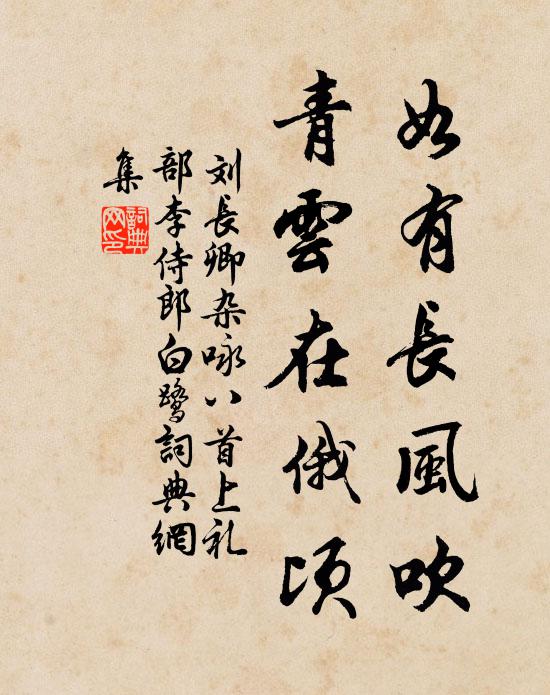 如有長風吹
青雲在俄頃
刘長卿杂咏八首上礼
部李侍郎白鹭詞典網
集
詞典
网印